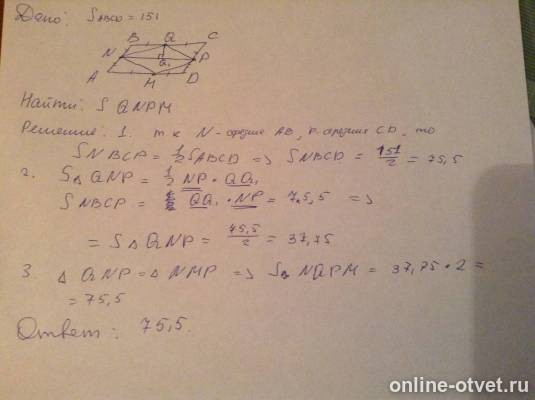 Дано: S ABCD = 151
B Q C
N Q₁ P
A M D
Найти: S QNPM
Решение: 1. т к N - средине AB, P - средине CD, то
S NBCP = 1/2 S ABCD => S NBCD = 151/2 = 75,5
2. S△QNP = 1/2 NP · QQ₁
S NBCP = QQ₁ · NP = 75,5 =>
= S△QNP = 75,5/2 = 37,75
3. △ QNP = △ NMP => S NQPM = 37,75 · 2 =
= 75,5
Ответ: 75,5.
online-otvet.ru